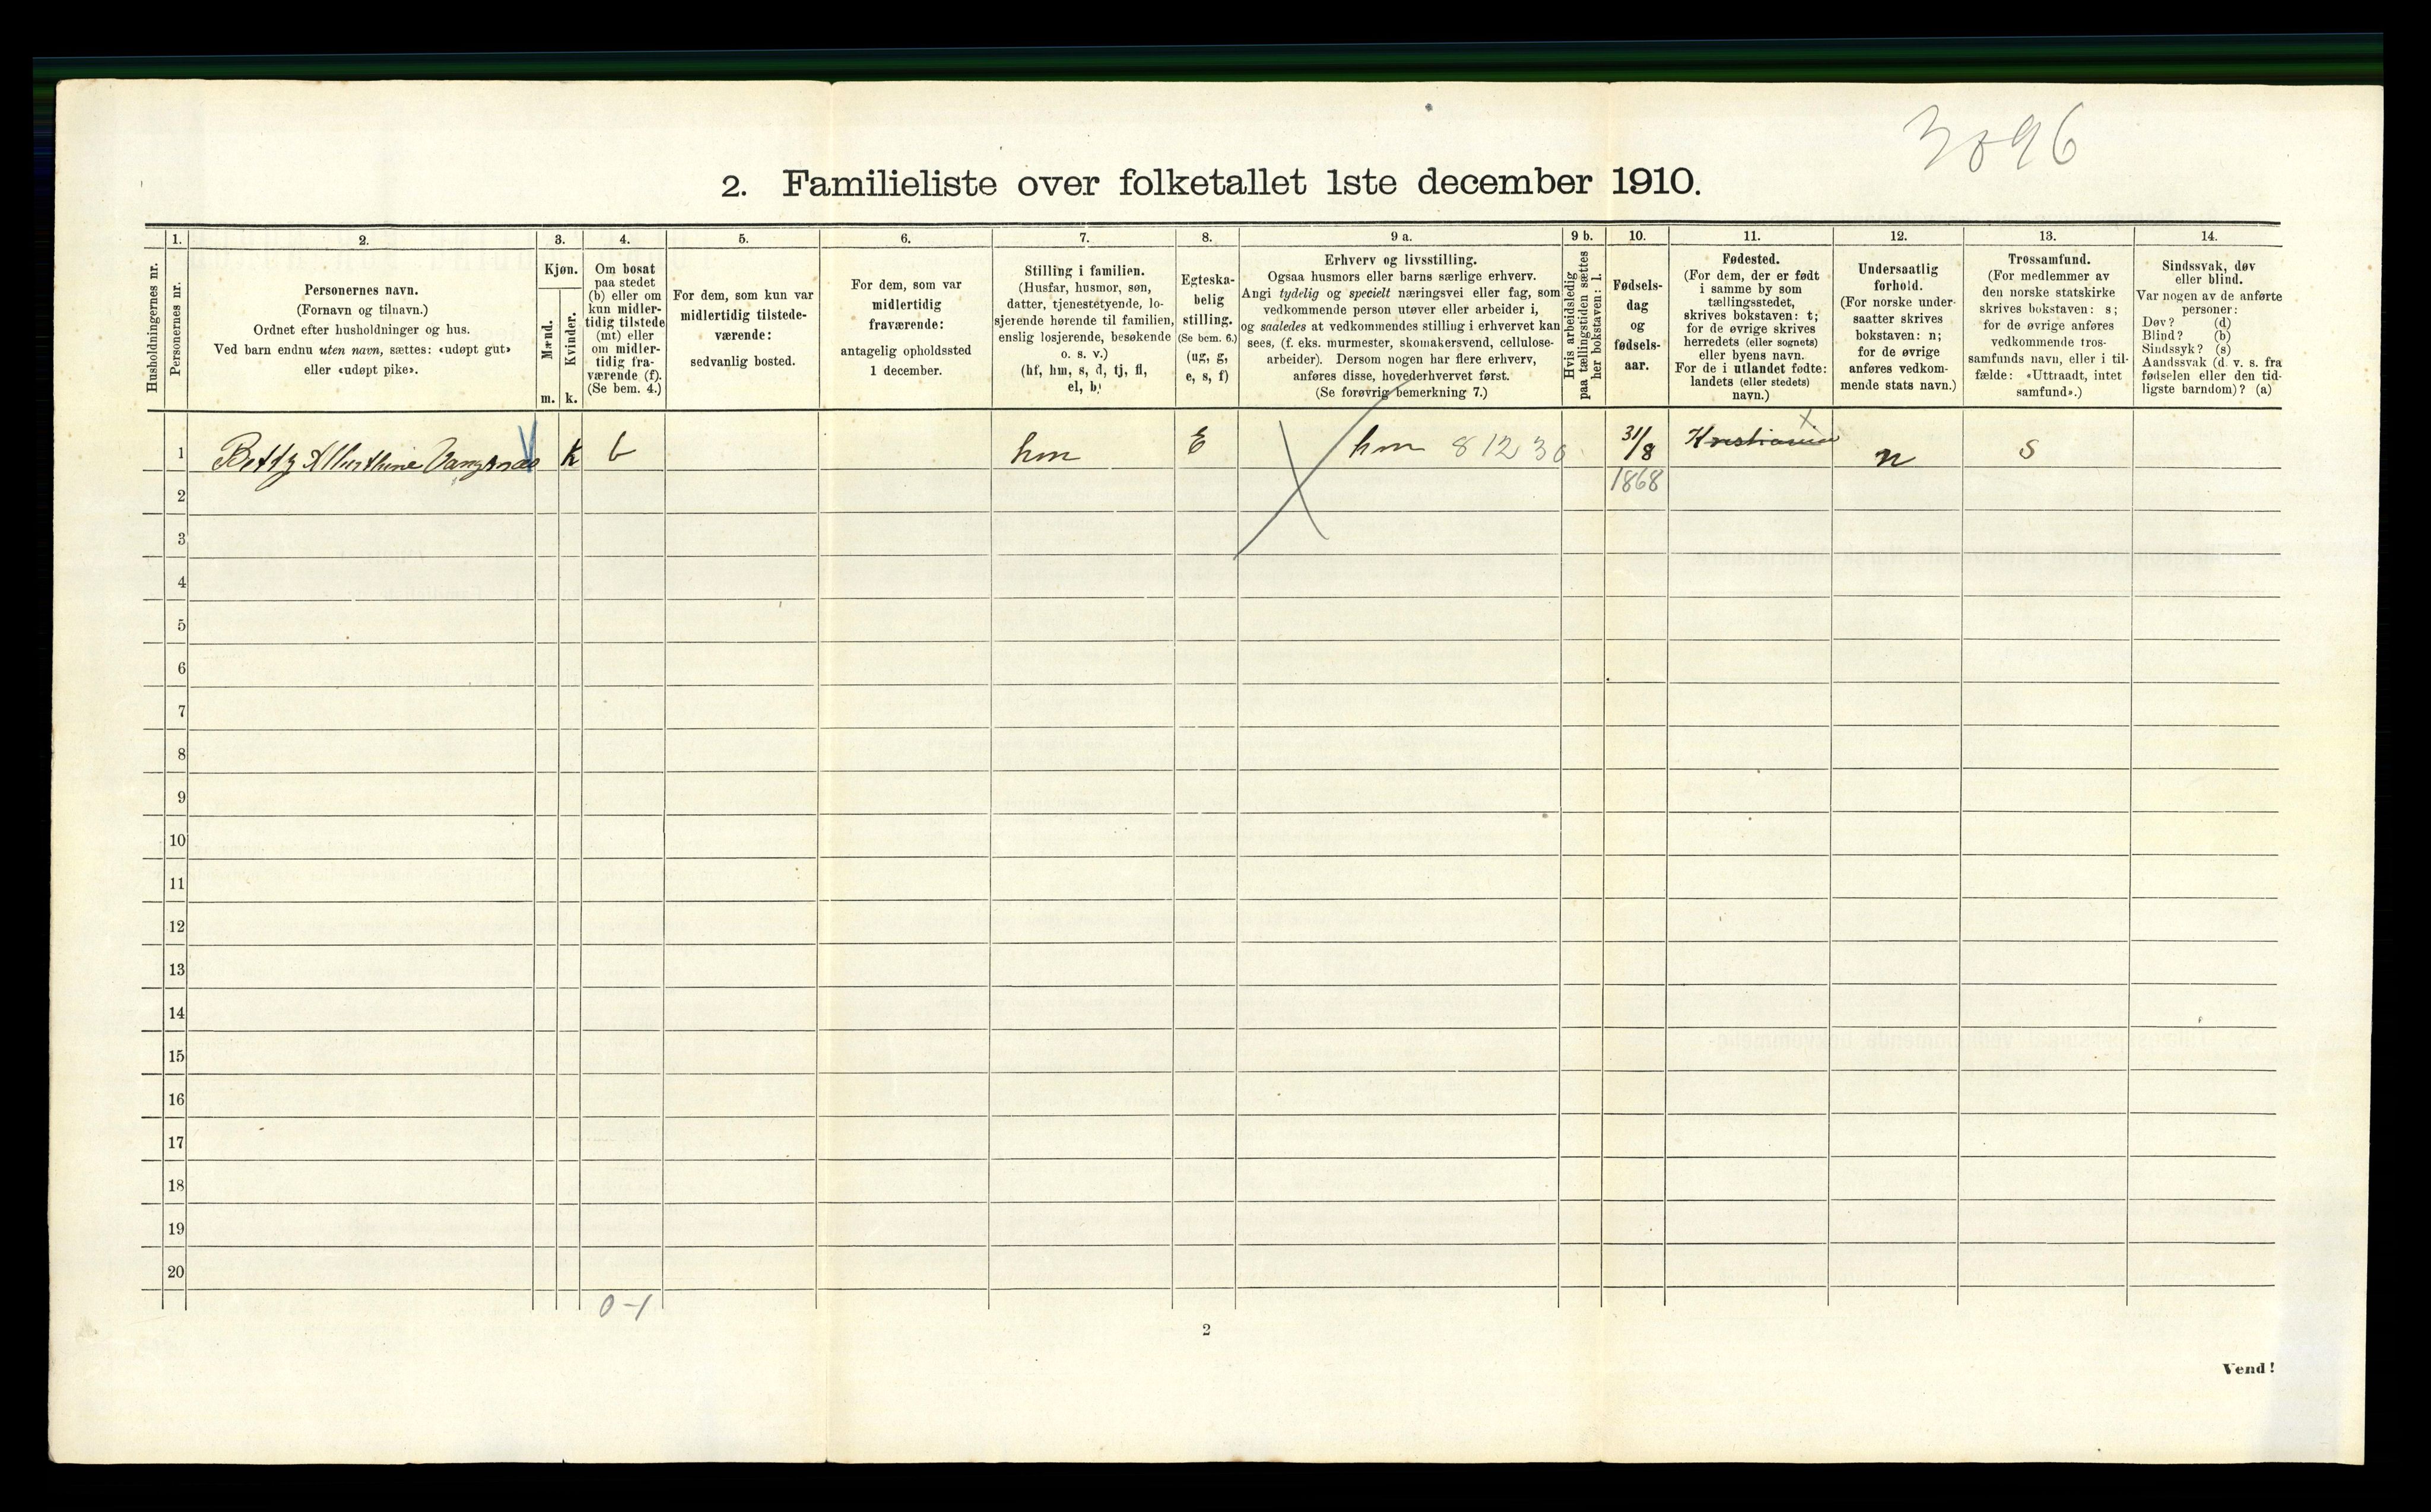 3096
2. Familieliste over folketallet 1ste december 1910.
Husholdningernes nr.
1.
Personernes nr.
2.
Personernes navn.
(Fornavn og tilnavn.)
Ordnet efter husholdninger og hus.
Ved barn endnu uten navn, sættes: «udøpt gut»
eller «udøpt pike».
3.
Kjøn.
Mænd.
Kvinder.
m. k.
4.
Om bosat
paa stedet
(b) eller om
kun midler-
tidig tilstede
(mt) eller
om midler-
tidig fra-
værende (f).
(Se bem. 4.)
5.
For dem, som kun var
midlertidig tilstede-
værende:
sedvanlig bosted.
6.
For dem, som var
midlertidig
fraværende:
antagelig opholdssted
1 december.
7.
Stilling i familien.
(Husfar, husmor, søn,
datter, tjenestetyende, lo-
sjerende hørende til familien,
enslig losjerende, besøkende
o. s. v.)
(hf, hm, s, d, tj, fl,
el, b)
8.
Egteska-
belig
stilling.
(Se bem. 6.)
(ug, g,
e, s, f)
9 a.
Erhverv og livsstilling.
Ogsaa husmors eller barns særlige erhverv.
Angi tydelig og specielt næringsvei eller fag, som
vedkommende person utøver eller arbeider i,
og saaledes at vedkommendes stilling i erhvervet kan
sees, (f. eks. murmester, skomakersvend, cellulose-
arbeider). Dersom nogen har flere erhverv,
anføres disse, hovederhvervet først.
(Se forøvrig bemerkning 7.)
9 b.
Hvis arbeidsledig
paa tællingstiden sættes
her bokstaven: l.
10.
Fødsels-
dag
og
fødsels-
aar.
11.
Fødested.
(For dem, der er født
i samme by som
tællingsstedet,
skrives bokstaven: t;
for de øvrige skrives
herredets (eller sognets)
eller byens navn.
For de i utlandet fødte:
landets (eller stedets)
navn.)
12.
Undersaatlig
forhold.
(For norske under-
saatter skrives
bokstaven: n;
for de øvrige
anføres vedkom-
mende stats navn.)
13.
Trossamfund.
(For medlemmer av
den norske statskirke
skrives bokstaven: s;
for de øvrige anføres
vedkommende tros-
samfunds navn, eller i til-
fælde: «Uttraadt, intet
samfund».)
14.
Sindssvak, døv
eller blind.
Var nogen av de anførte
personer:
Døv? (d)
Blind? (b)
Sindssyk? (s)
Aandssvak (d. v. s. fra
fødselen eller den tid-
ligste barndom)? (a)
1 Betty k b hm E hm 81230 31/8 Kristiania n s
2 1868
3
4
5
6
7
8
9
10
11
12
13
14
15
16
17
18
19
20
0-1
2
Vend!